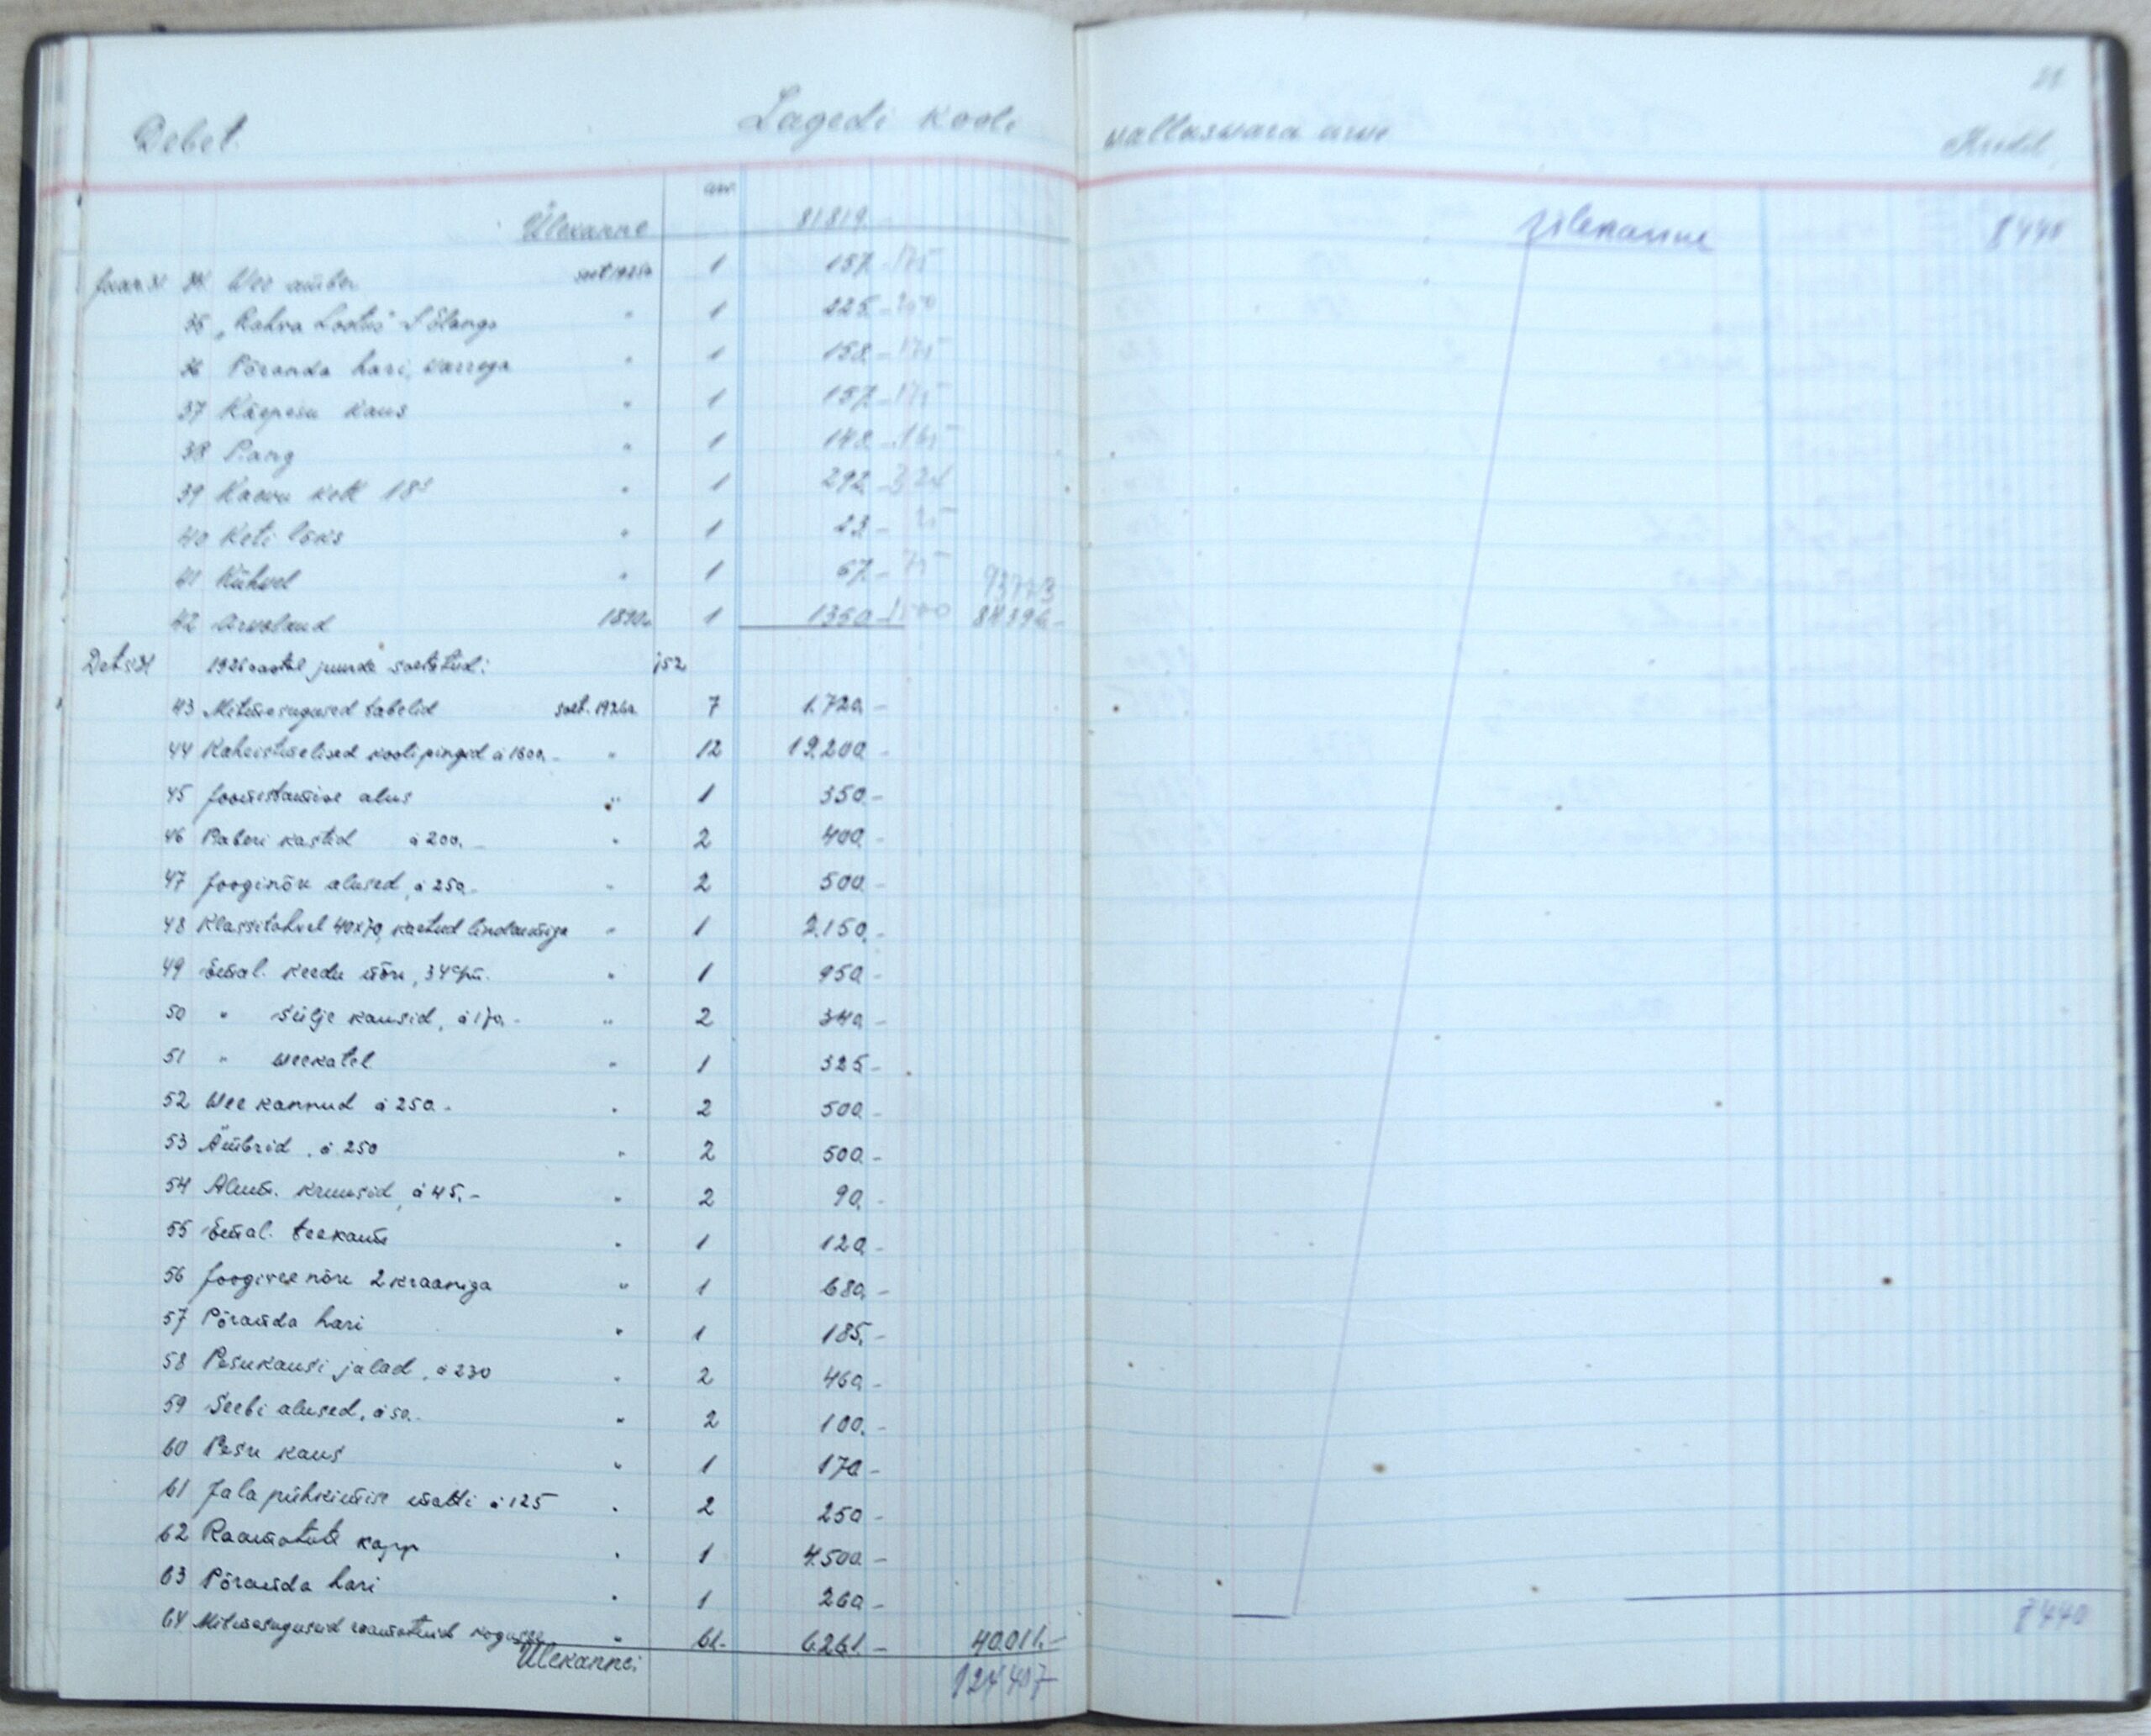 Debet. Lagedi kooli
Ülekanne 81819.
Jaan 31 34 Wee ämber soet 1925a 1 157.- 175
35 „Rahva Lootus" 1 225.- 250
36 Põranda hari, warrega " 1 158.- 175
37 Käepesu kaus " 1 157.- 175
38 Pang " 1 148.- 165
39 Kaewu kett 18' " 1 292.- 324
40 Keti lõks " 1 23.- 25
41 Kühvel " 1 67.- 75
42 Arvelaud 1890a. 1 1350.- 1500 84396.-
Dets 31 1926 aastal juurde soetatud: 152
43 Mitmesugused tabelid soet. 1926a. 7 1.720.-
44 Kaheistmelised koolipingid á 1600.- " 12 19.200.-
45 Joonestamise alus " 1 350.-
46 Paberi kastid á 200.- " 2 400.-
47 Jooginõu alused, á 250.- " 2 500.-
48 Klassitahvel 40x70, kaetud linoleumiga " 1 2.150.-
49 Emal. keedu nõu, 34 c/m. " 1 950.-
50 " Sülje kausid, á 170.- " 2 340.-
51 " weekatel " 1 325.-
52 Wee kannud á 250.- " 2 500.-
53 Ämbrid, á 250 " 2 500.-
54 Alum. kruusid, á 45.- " 2 90.-
55 Emal. teekann " 1 120.-
56 Joogivee nõu 2 kraaniga " 1 680.-
57 Põranda hari " 1 185.-
58 Pesukausi jalad, á 230 " 2 460.-
59 Seebi alused, á 50.- " 2 100.-
60 Pesu kaus " 1 170.-
61 Jala pühkimise matti á 125 " 2 250.-
62 Raamatute kapp " 1 4.500.-
63 Põranda hari " 1 260.-
64 Mitmesuguseid raamatuid kogusse " 61.- 6.261.- 40.011.-
Ülekanne: 124407
wallaswara arwe Kredit
Ülekanne 8440
8440